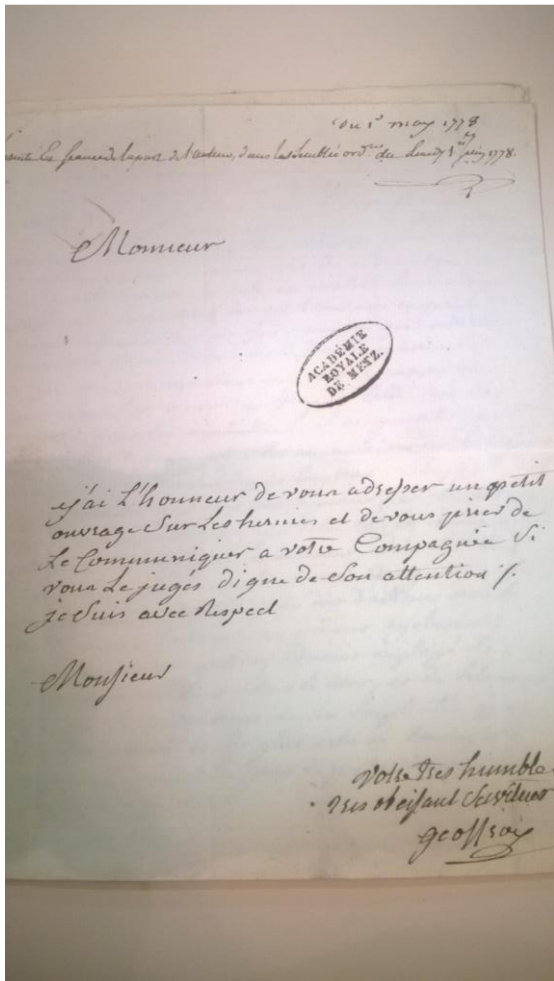 Du 1er may 1778
Séance de la part de l'auteur, dans l'assemblée ordre du Lundy 1er juin 1778.
Monsieur
ACADÉMIE
ROYALE
DE METZ.
j'ai L'honneur de vous adresser un petit
ouvrage Sur Les hernies et de vous prier de
Le Communiquer a votre Compagnie Si
vous Le jugés digne de Son attention /.
je Suis avec Respect
Monsieur
Votre tres humble
tres obeisant Serviteur
geoffroy